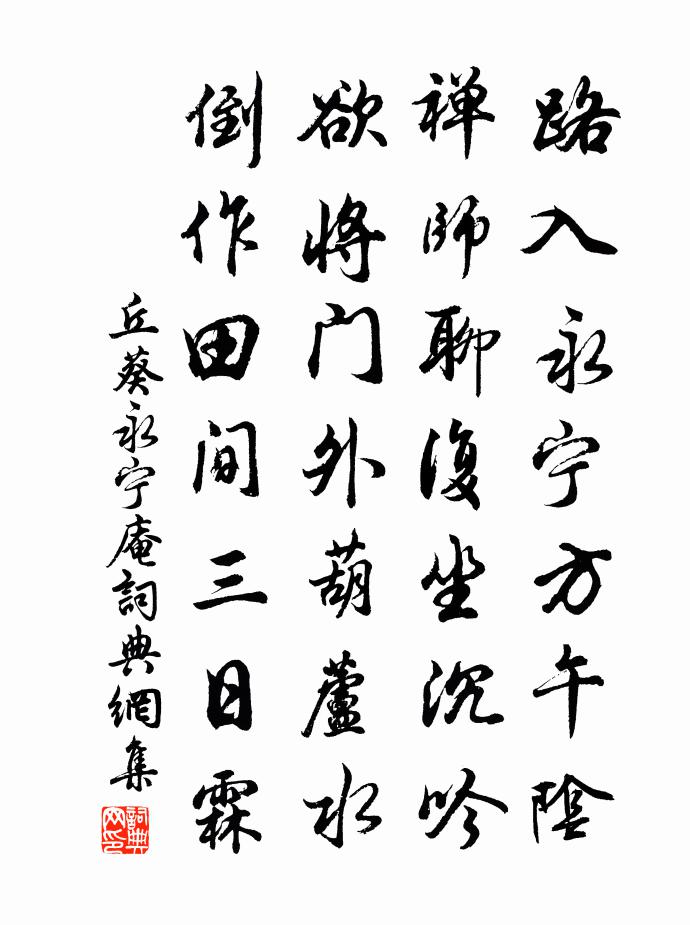 路入永宁方午陰
禅師聊復坐沉吟
欲將门外葫蘆水
倒作田间三日霖
丘葵永宁庵詞典網集
詞典网印